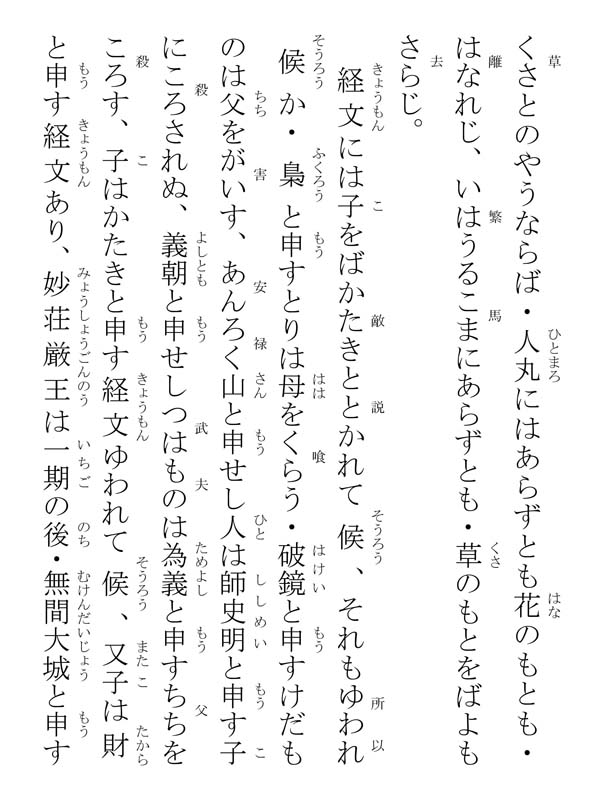 くさとのやうならば・人丸にはあらずとも花のもとも・
はなれじ、いはうるこまにあらずとも・草のもとをばよも
さらじ。
経文には子をばかたきととかれて候、それもゆわれ
候か・梟と申すとりは母をくらう・破鏡と申すけだも
のは父をがいす、あんろく山と申せし人は師史明と申す子
にころされぬ、義朝と申せしつはものは為義と申すちちを
ころす、子はかたきと申す経文ゆわれて候、又子は財
と申す経文あり、妙荘厳王は一期の後・無間大城と申す